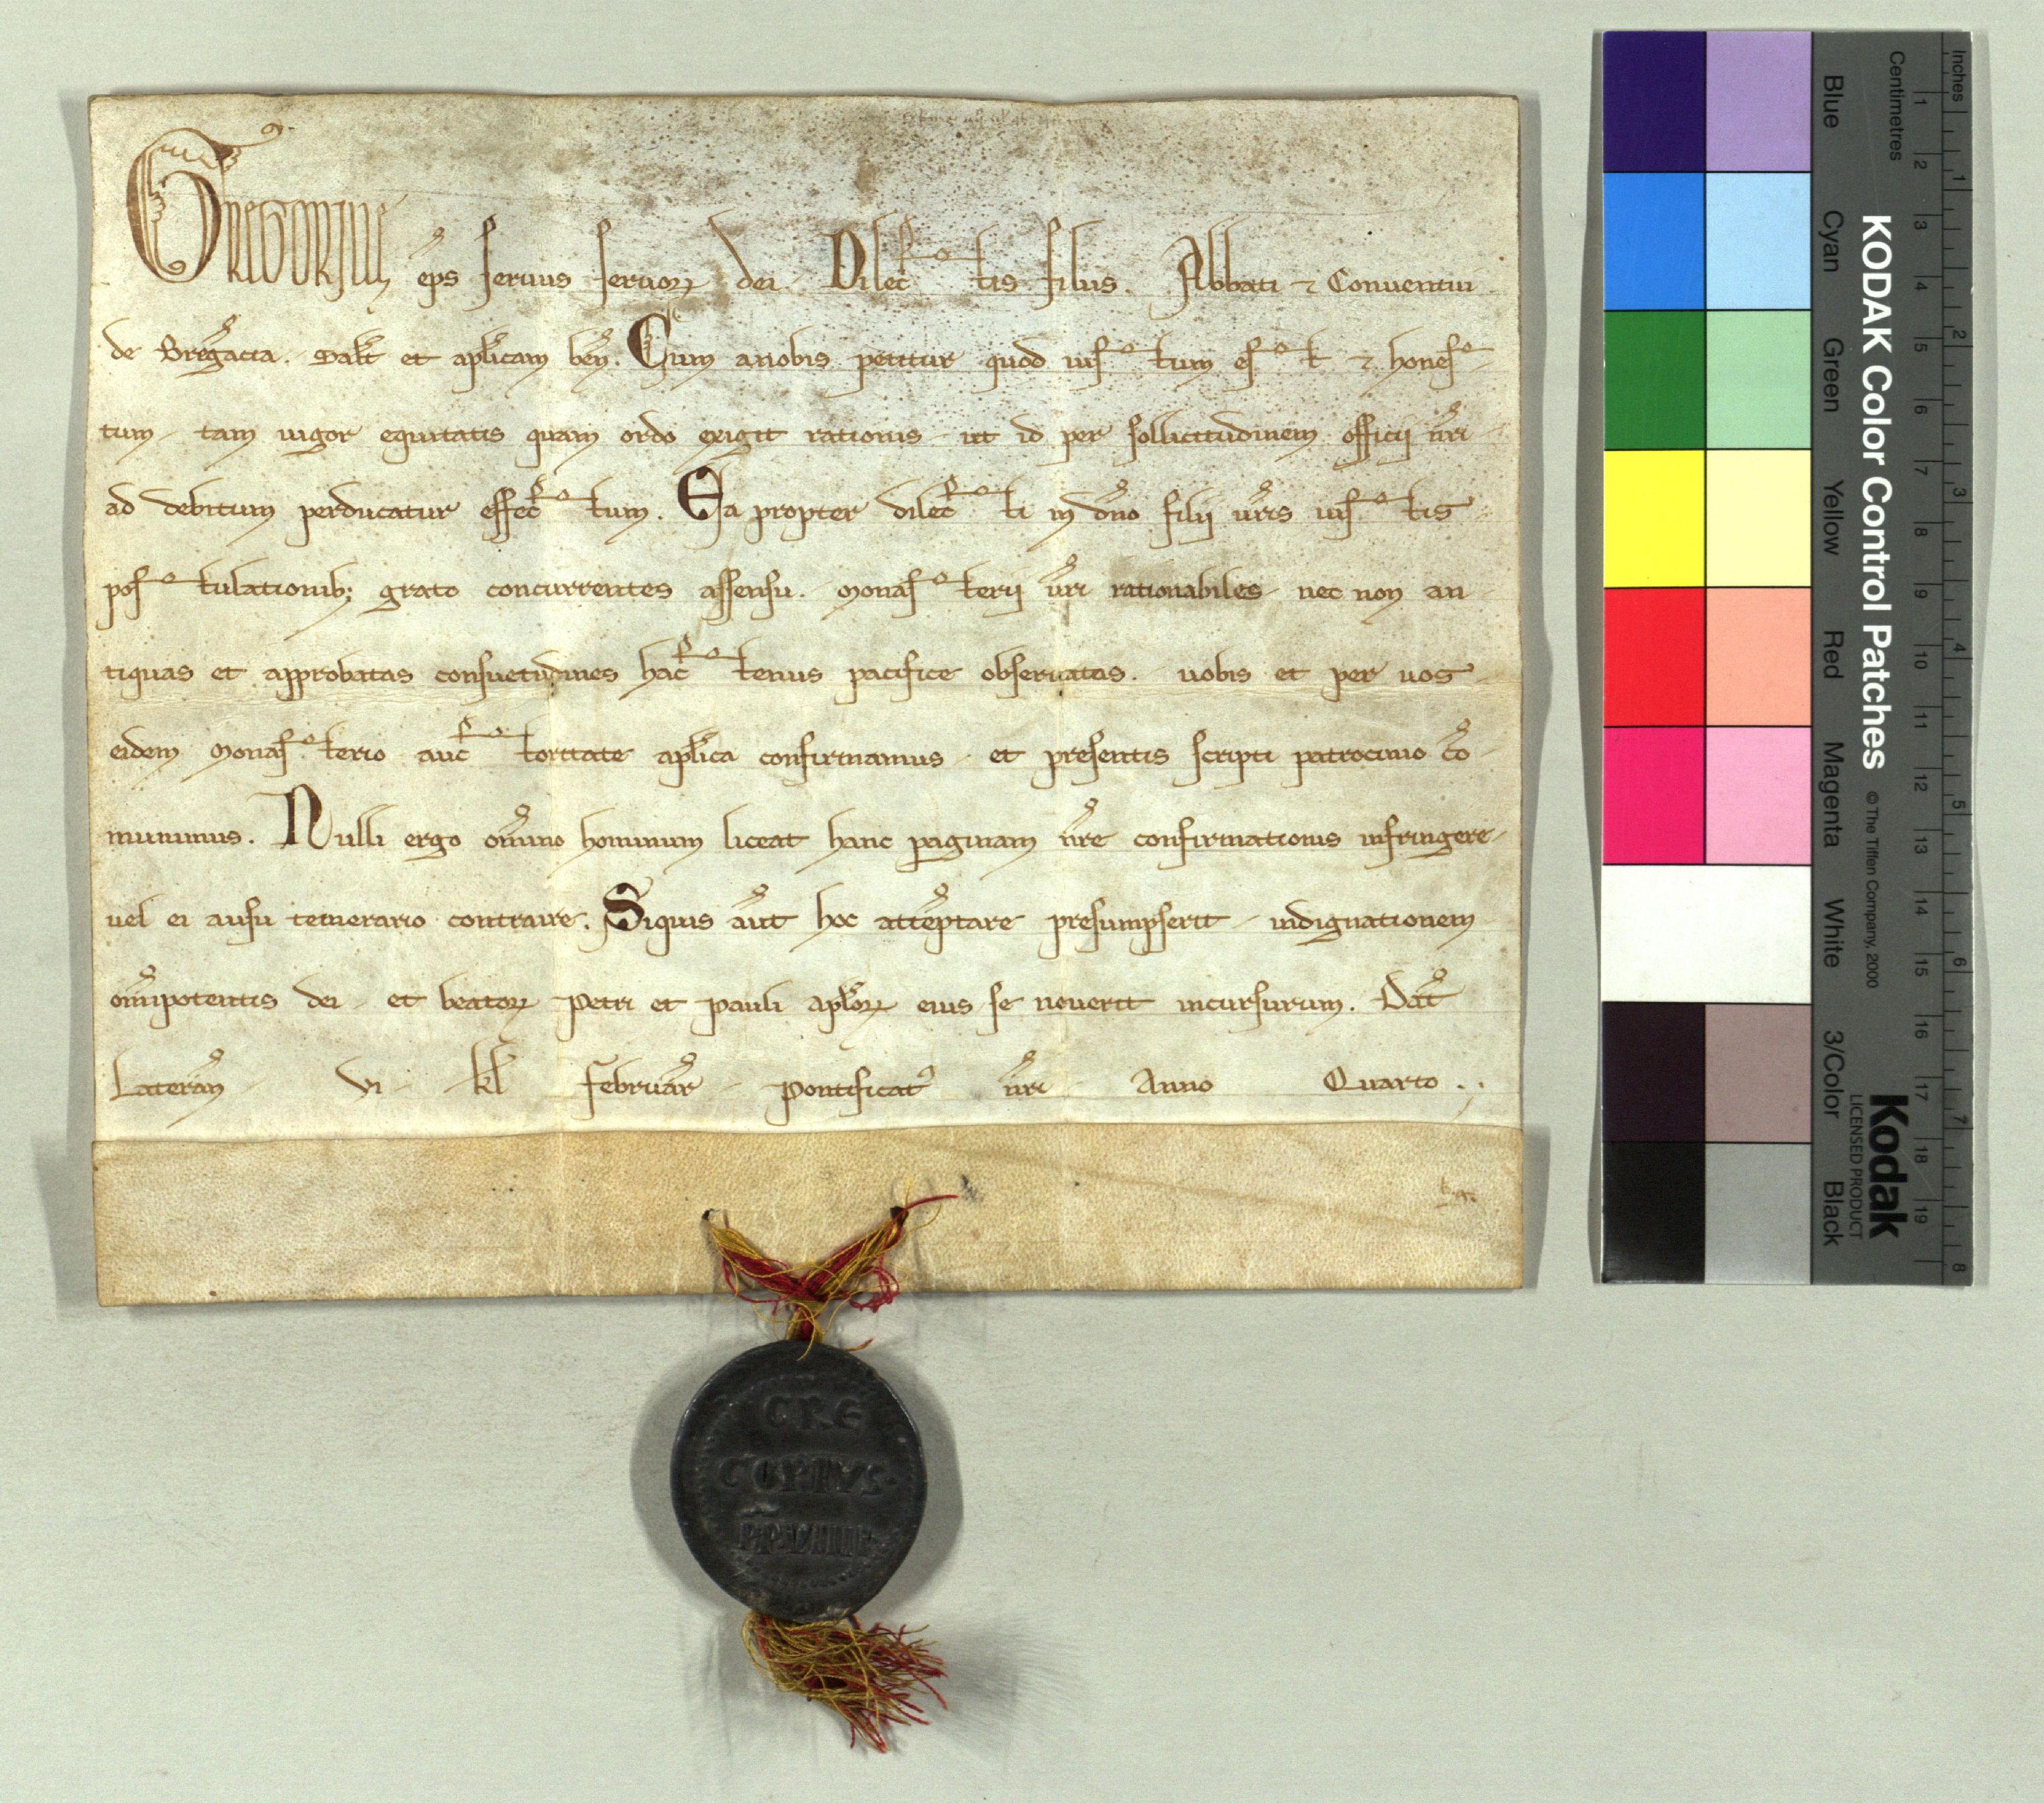 GREGORIUS ep̄s servus servoꝝ dei. Dilectis filiis. Abbati ⁊ Conventui
de Brēgātia. Sal̄t et apl̄icam ben̄. Cum a nobis petitur quod iustum est ⁊ hones-
tum, tam vigor equitatis quam ordo exigit rationis, ut id per sollicitudinem officij nr̄i
ad debitum perducatur effectum. Ea propter dilecti in dn̄o filij vr̄is iustis
postulationib; grato concurrentes assensu. Monasterij vr̄i rationabiles, nec non an-
tiquas et approbatas consuetudines hactenus pacifice observatas, vobis et per vos
eidem Monasterio auctoritate apl̄ica confirmamus, et presentis scripti patrocinio cō-
munimus. Nulli ergo om̄ino hominum liceat hanc paginam nr̄e confirmationis infringere,
vel ei ausu temerario contraire. Siquis aūt hoc attēptare presumpserit, indignationem
om̄ipotentis dei, et beatoꝝ Petri et Pauli apl̄oꝝ eius se noverit incursurum. Dat̄
Laterān̄ VI kl̄ Februar̄ Pontificatꝰ nr̄i Anno Quarto.
GRE
GORIVS
P̄P̄ VIIII
KODAK Color Control Patches © The Tiffen Company, 2000
Kodak
LICENSED PRODUCT
Inches 1 2 3 4 5 6 7 8
Centimetres 1 2 3 4 5 6 7 8 9 10 11 12 13 14 15 16 17 18 19
Blue Cyan Green Yellow Red Magenta White 3/Color Black